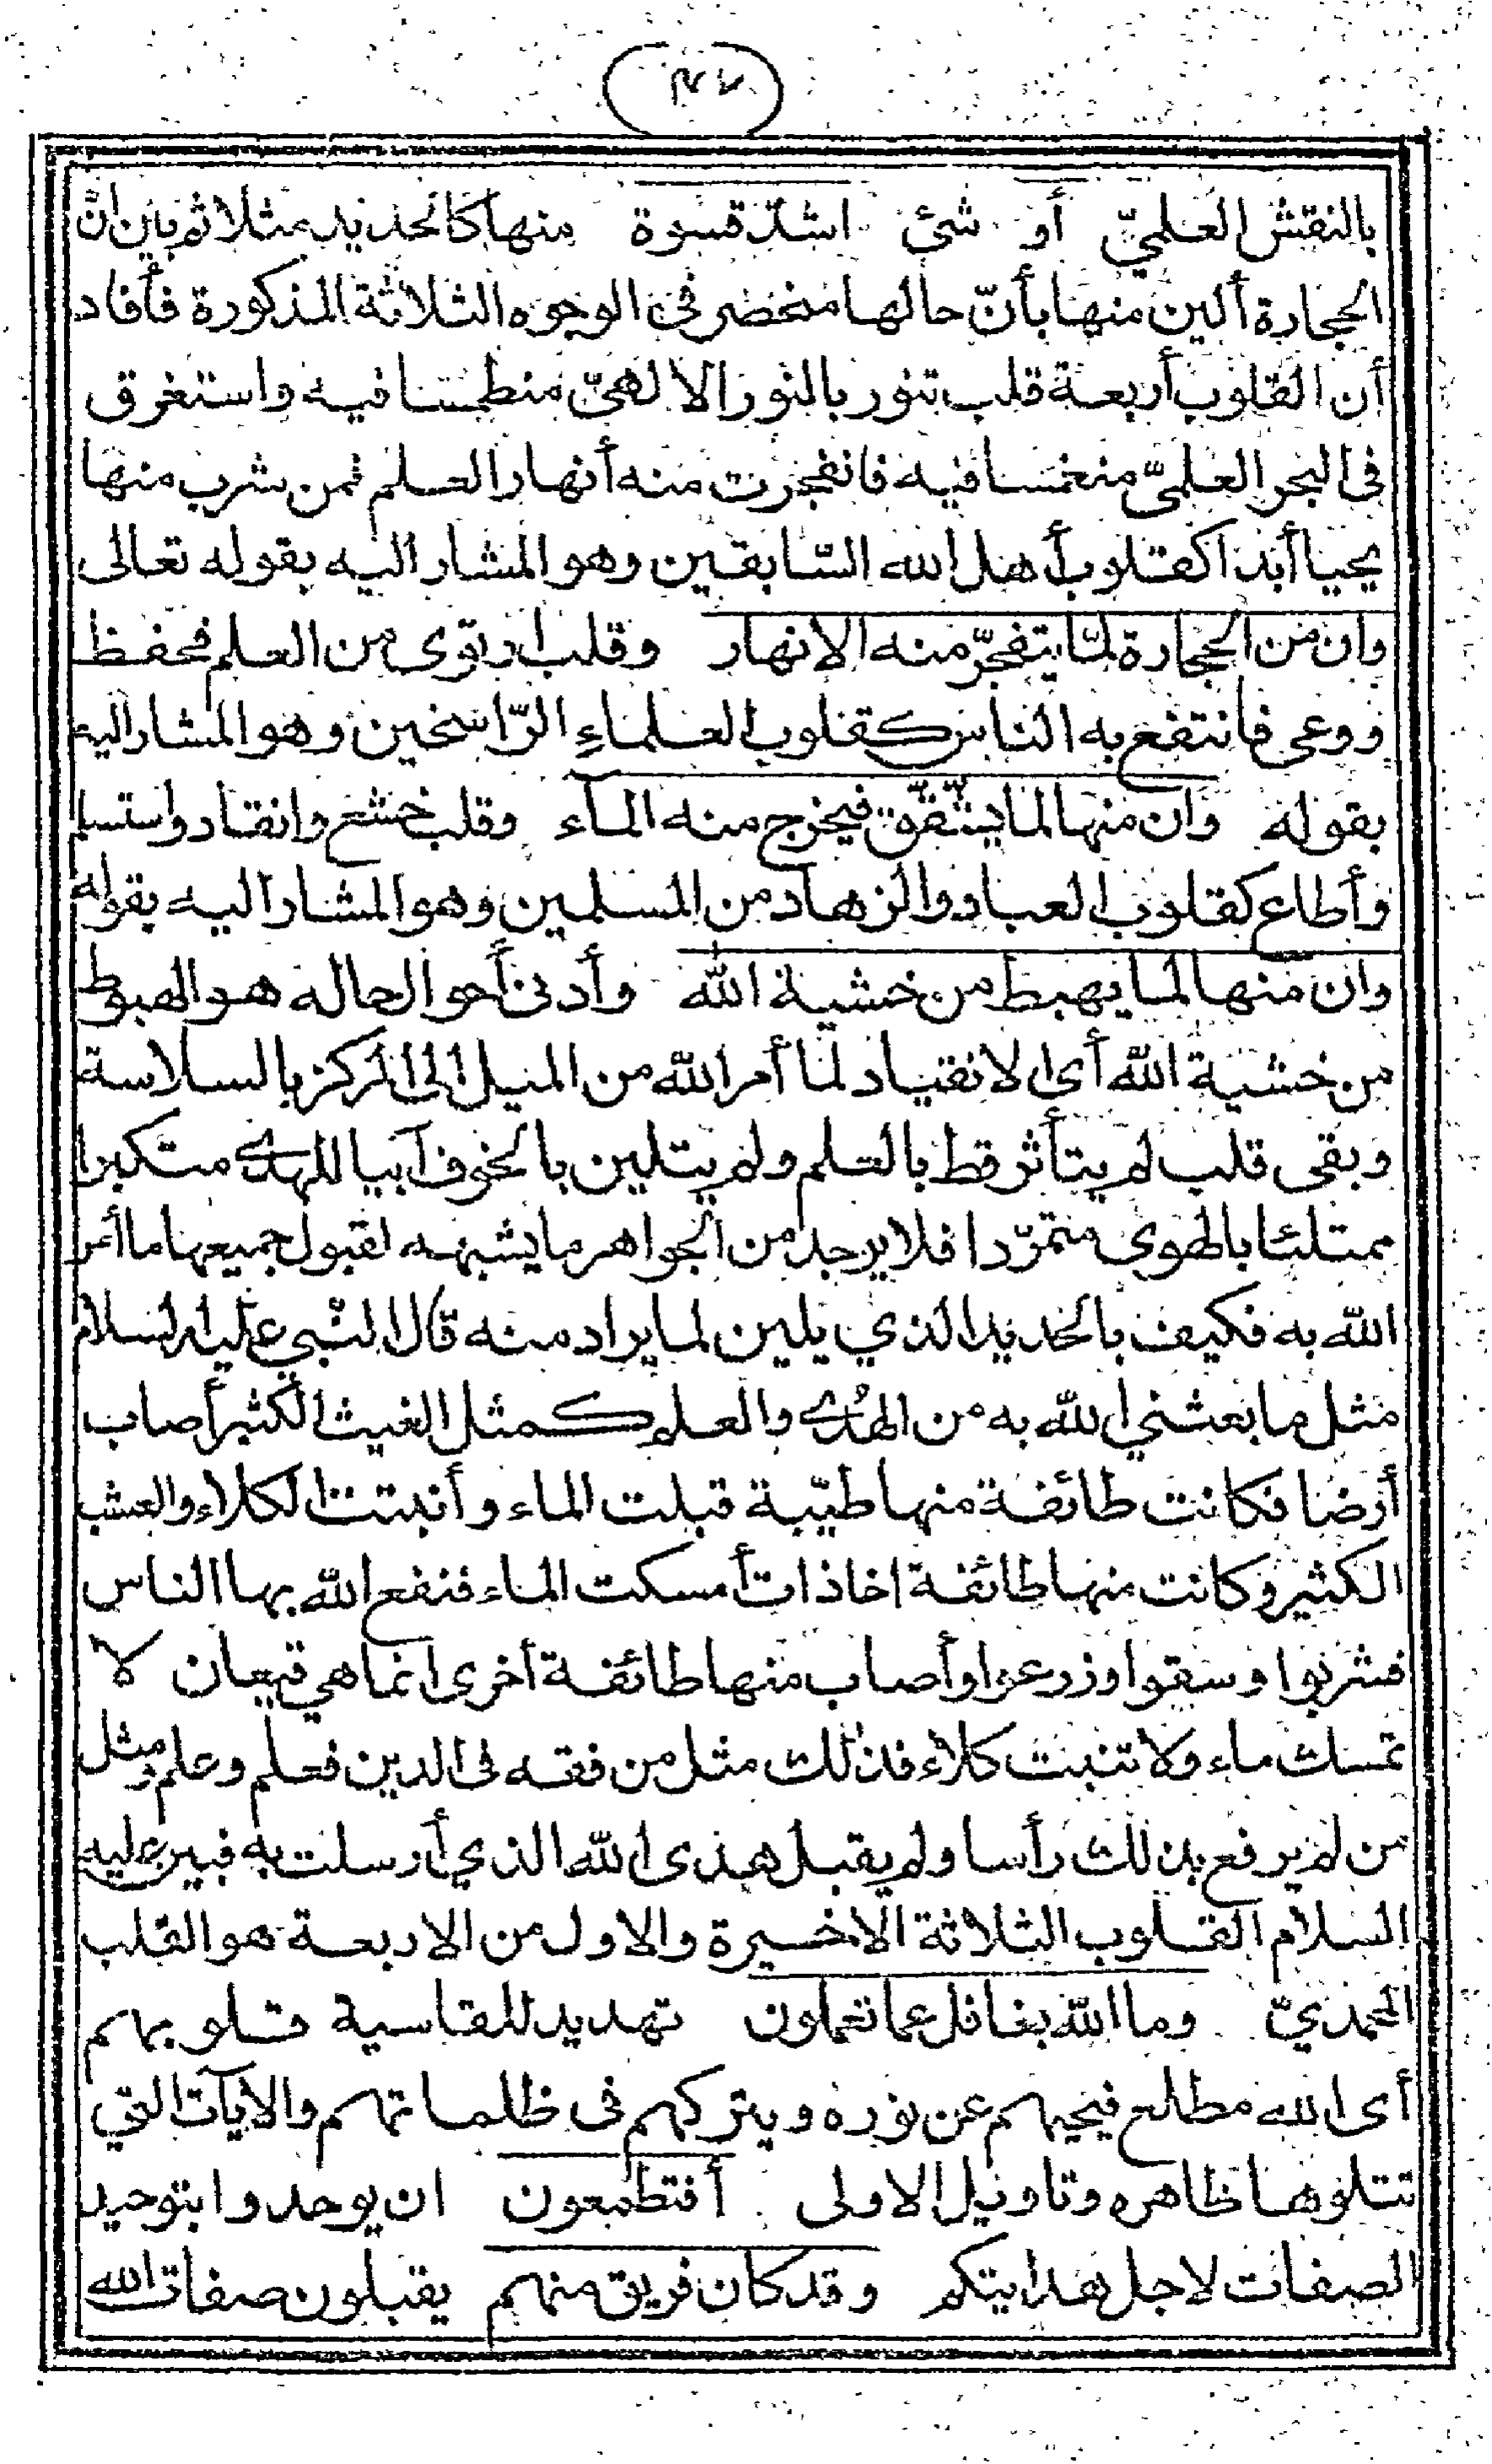 ٤٧
بالنقش العلميّ أو شئ اشدّ قسوة منها كالحديد مثلا ثم بين انّ
الحجارة ألين منها بأنّ حالها منحصر فى الوجوه الثلاثة المذكورة فأفاد
أن القلوب أربعة قلب تنور بالنور الالهىّ منطمسا فيه واستغرق
فى البحر العلمىّ منغمسا فيه فانفجرت منه أنهار العلم فمن شرب منها
يحيا أبدا كقلوب أهل الله السّابقين وهو المشار اليه بقوله تعالى
وان من الحجارة لمّا يتفجّر منه الانهار وقلب ارتوى من العلم فحفظ
ووعى فانتفع به الناس كقلوب العلماءِ الرّاسخين وهو المشار اليه
بقوله وان منها لما يشّقّق فيخرج منه المآء وقلب خشع وانقاد واستسلم
وأطاع كقلوب العباد والزهاد من المسلمين وهو المشار اليه بقوله
وان منها لما يهبط من خشية الله وأدنى أحوال حاله هو الهبوط
من خشية الله أى الانقياد لما أمر الله من الميل الى المركز بالسلاسة
وبقى قلب لم يتأثر قط بالعلم ولم يتلين بالخوف آبيا للهدى متكبرا
ممتلئا بالهوى متمرّدا فلا يرجد من الجواهر ما يشبهه لقبول جميعها ما أمر
الله به فكيف بالحديد الذي يلين لما يراد منه قال النّبي عليه السلام
مثل ما بعثني الله به من الهُدى والعلم كمثل الغيث الكثير أصاب
أرضا فكانت طائفة منها طيّبة قبلت الماء وأنبتت الكلاء والعشب
الكثير وكانت منها طائفة اخاذات أمسكت الماء فنفع الله بها الناس
فشربوا وسقوا وزرعوا وأصاب منها طائفة أخرى انما هي قيعان لا
تمسك ماء ولا تنبت كلاء فذلك مثل من فقه فى الدين فعلم وعلم ومثل
من لم يرفع بذلك رأسا ولم يقبل هدى الله الذي أرسلت به فبين عليه
السلام القلوب الثلاثة الاخيرة والاول من الاربعة هو القلب
المحمديّ وما الله بغافل عما تعملون تهديد للقاسية قلوبهم
أى الله مطلع فيحيهم عن نوره ويتركهم فى ظلماتهم والآيات التي
تتلوها ظاهره وتاويل الاولى أفتطمعون ان يوحدوا بتوحيد
الصفات لاجل هدايتكم وقد كان فريق منهم يقبلون صفات الله